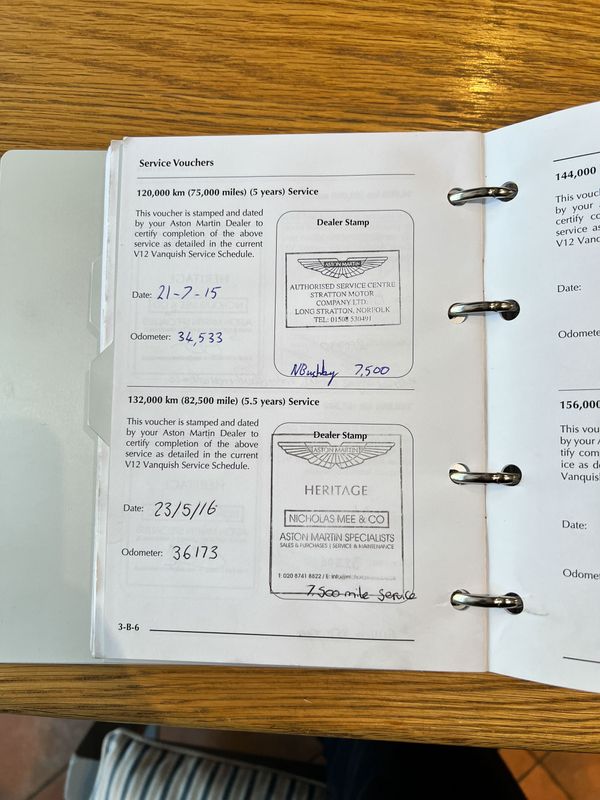 Service Vouchers
120,000 km (75,000 miles) (5 years) Service
This voucher is stamped and dated
by your Aston Martin Dealer to
certify completion of the above
service as detailed in the current
V12 Vanquish Service Schedule.
Date: 21-7-15
Odometer: 34,533
Dealer Stamp
ASTON MARTIN
AUTHORISED SERVICE CENTRE
STRATTON MOTOR
COMPANY LTD.
LONG STRATTON, NORFOLK
TEL: 01508 530491
7,500
132,000 km (82,500 mile) (5.5 years) Service
This voucher is stamped and dated
by your Aston Martin Dealer to
certify completion of the above
service as detailed in the current
V12 Vanquish Service Schedule.
Date: 23/5/16
Odometer: 36173
Dealer Stamp
ASTON MARTIN
HERITAGE
NICHOLAS MEE & CO
ASTON MARTIN SPECIALISTS
SALES & PURCHASES | SERVICE & MAINTENANCE
T: 020 8741 8822 / E:
7,500 mile Service
3-B-6
144,000
This vouc
by your
certify co
service as
V12 Vanq
Date:
Odomete
156,000
This vou
by your A
tify com
ice as d
Vanquis
Date:
Odome